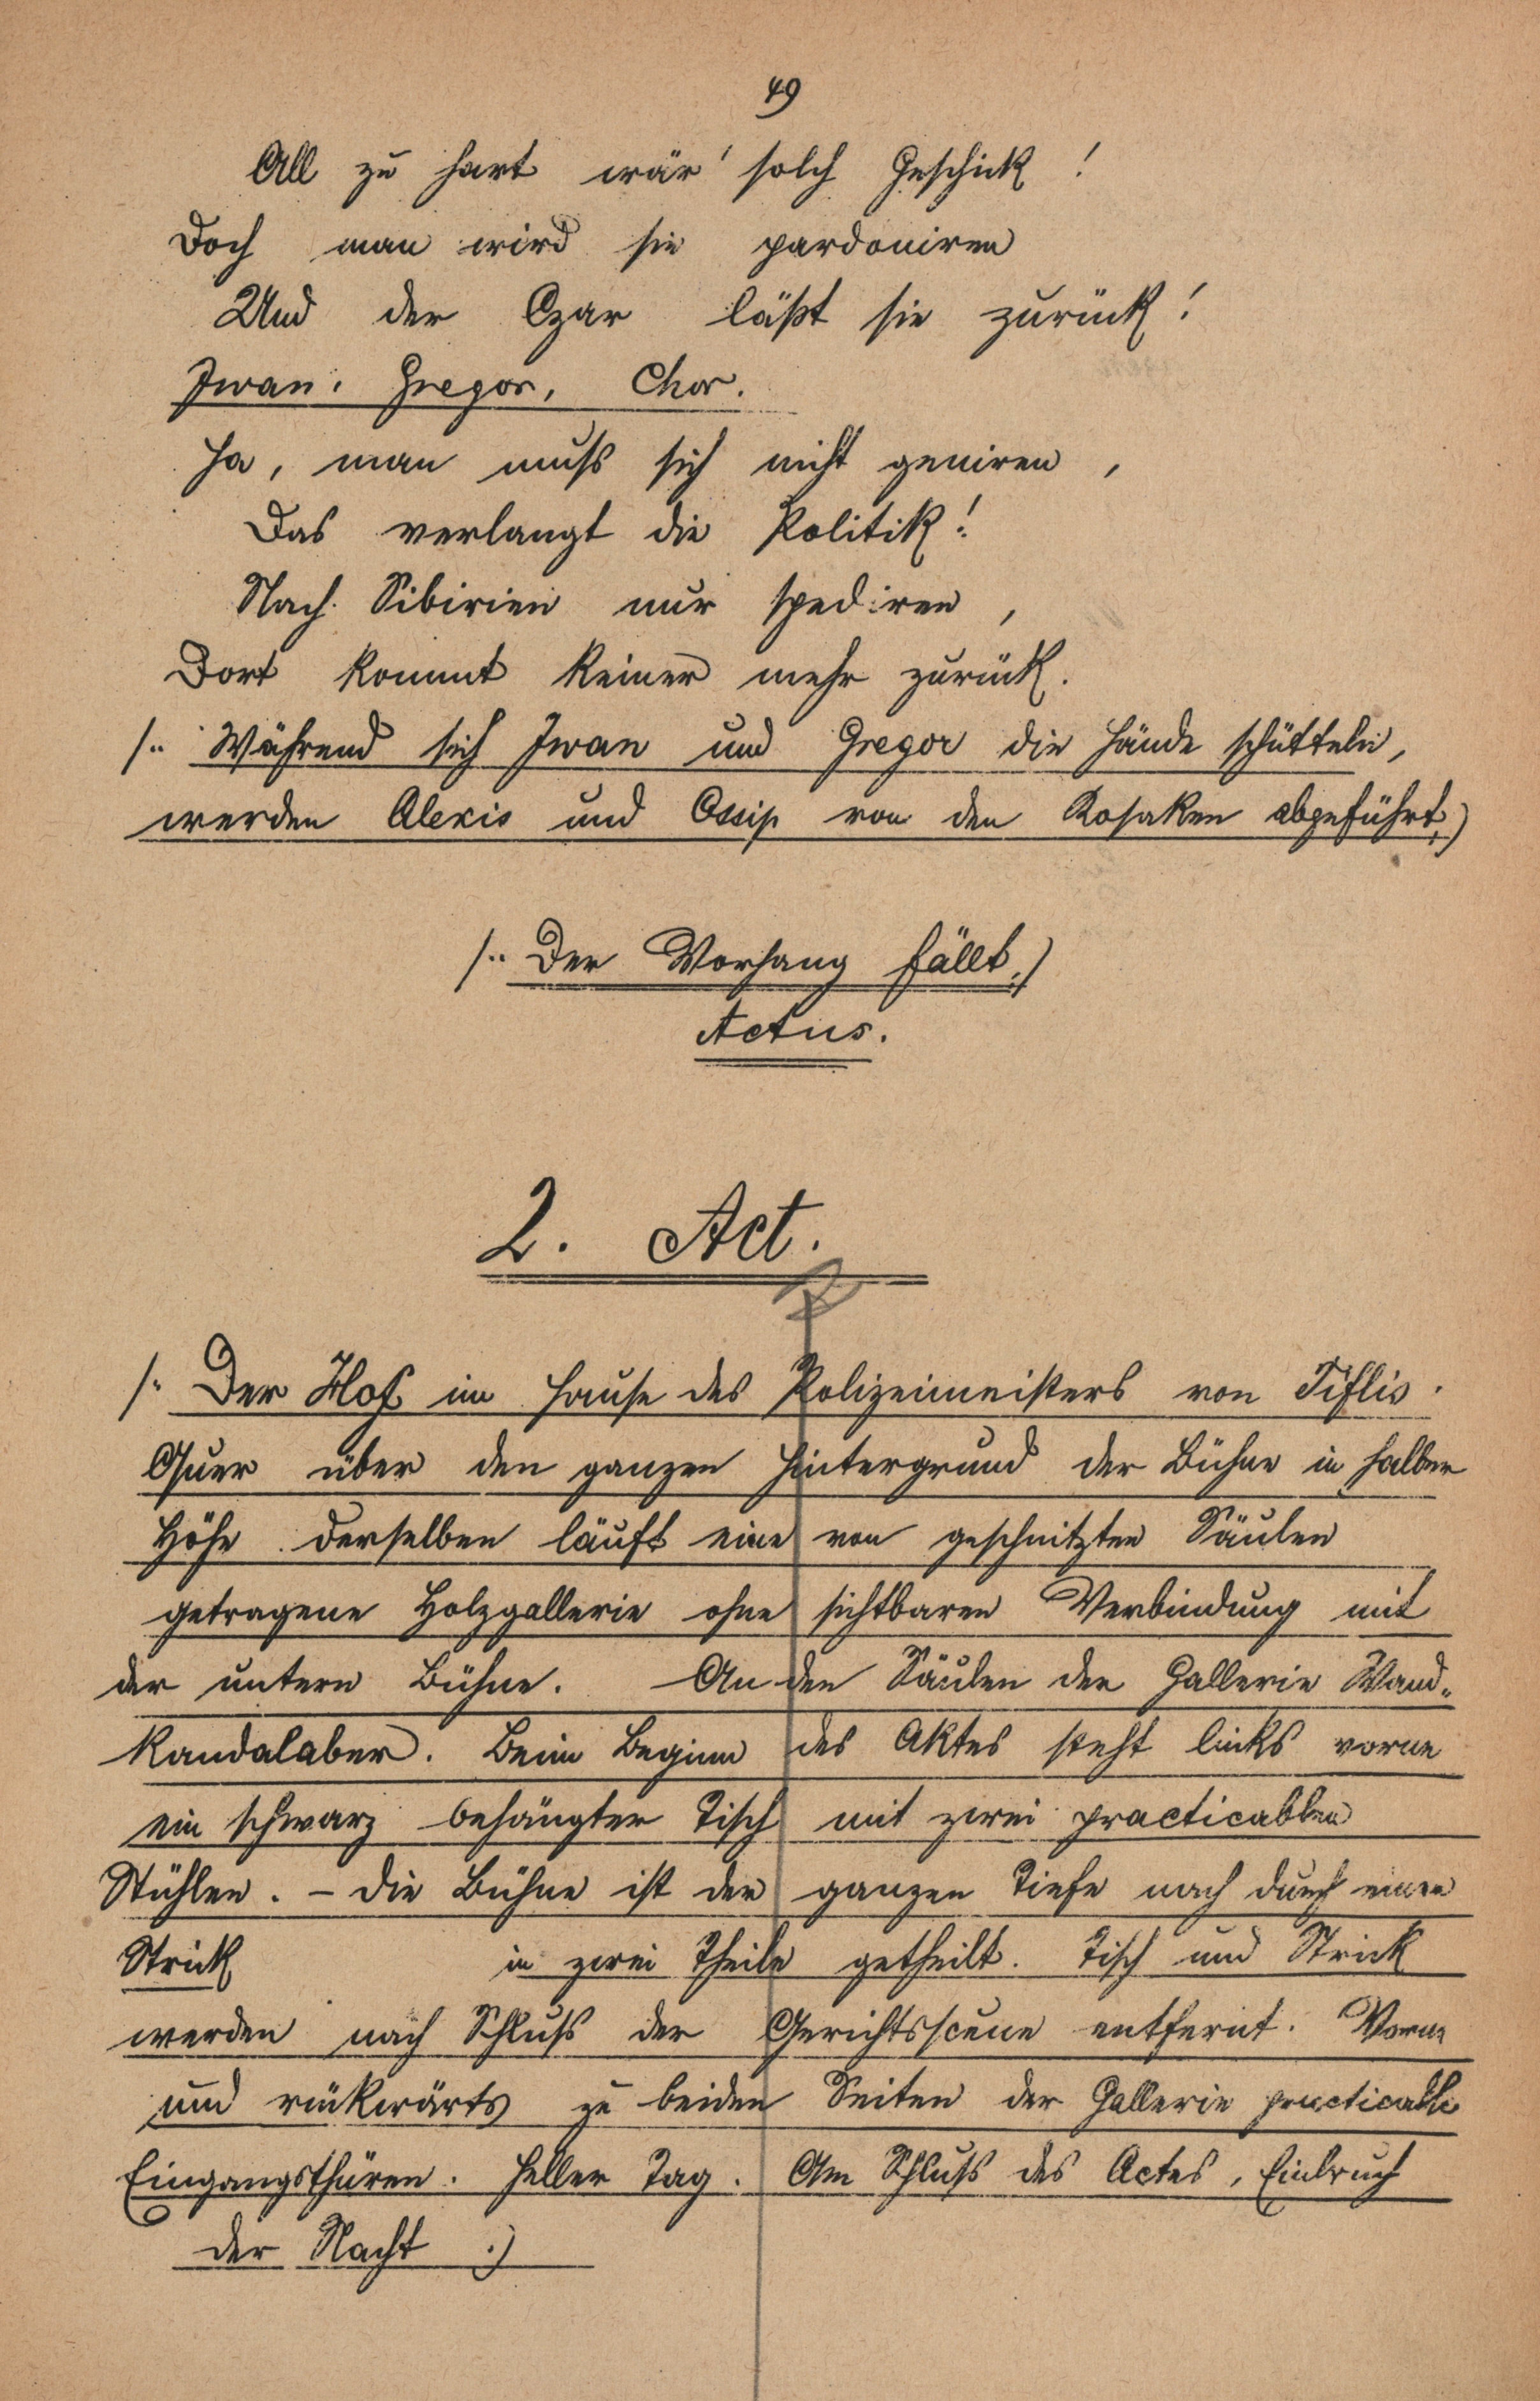 49
All zu hart wär' solch Geschick!
Doch man wird sie pardoniren
Und der Czar läßt sie zurück!
Iwan. Gregor, Chor.
Ja, man muß sich nicht geniren,
Das verlangt die Politik!
Nach Sibirien nur spediren,
Dort kommt keiner mehr zurück.
/: Während sich Iwan und Gregor die Hände schütteln,
werden Alexis und Ossip von den Kosaken abgeführt :/
/: Der Vorhang fällt :/
Actus.
2. Act.
/: Der Hof im Hause des Polizeimeisters von Tiflis.
Quer über den ganzen Hintergrund der Bühne in halber
Höhe derselben läuft eine von geschnitzten Säulen
getragene Holzgallerie ohne sichtbaren Verbindung mit
der untern Bühne. An den Säulen der Gallerie Wand-
kandalaber. Beim Beginn des Aktes steht links vorne
ein schwarz behängter Tisch mit zwei practicablen
Stühlen. – Die Bühne ist der ganzen Tiefe nach durch einen
Strick in zwei Theile getheilt. Tisch und Strick
werden nach Schluß der Gerichtsscene entfernt. Vorne
und rückwärts zu beiden Seiten der Gallerie practicable
Eingangsthüren. Heller Tag. Am Schluß des Actes, Einbruch
der Nacht :/